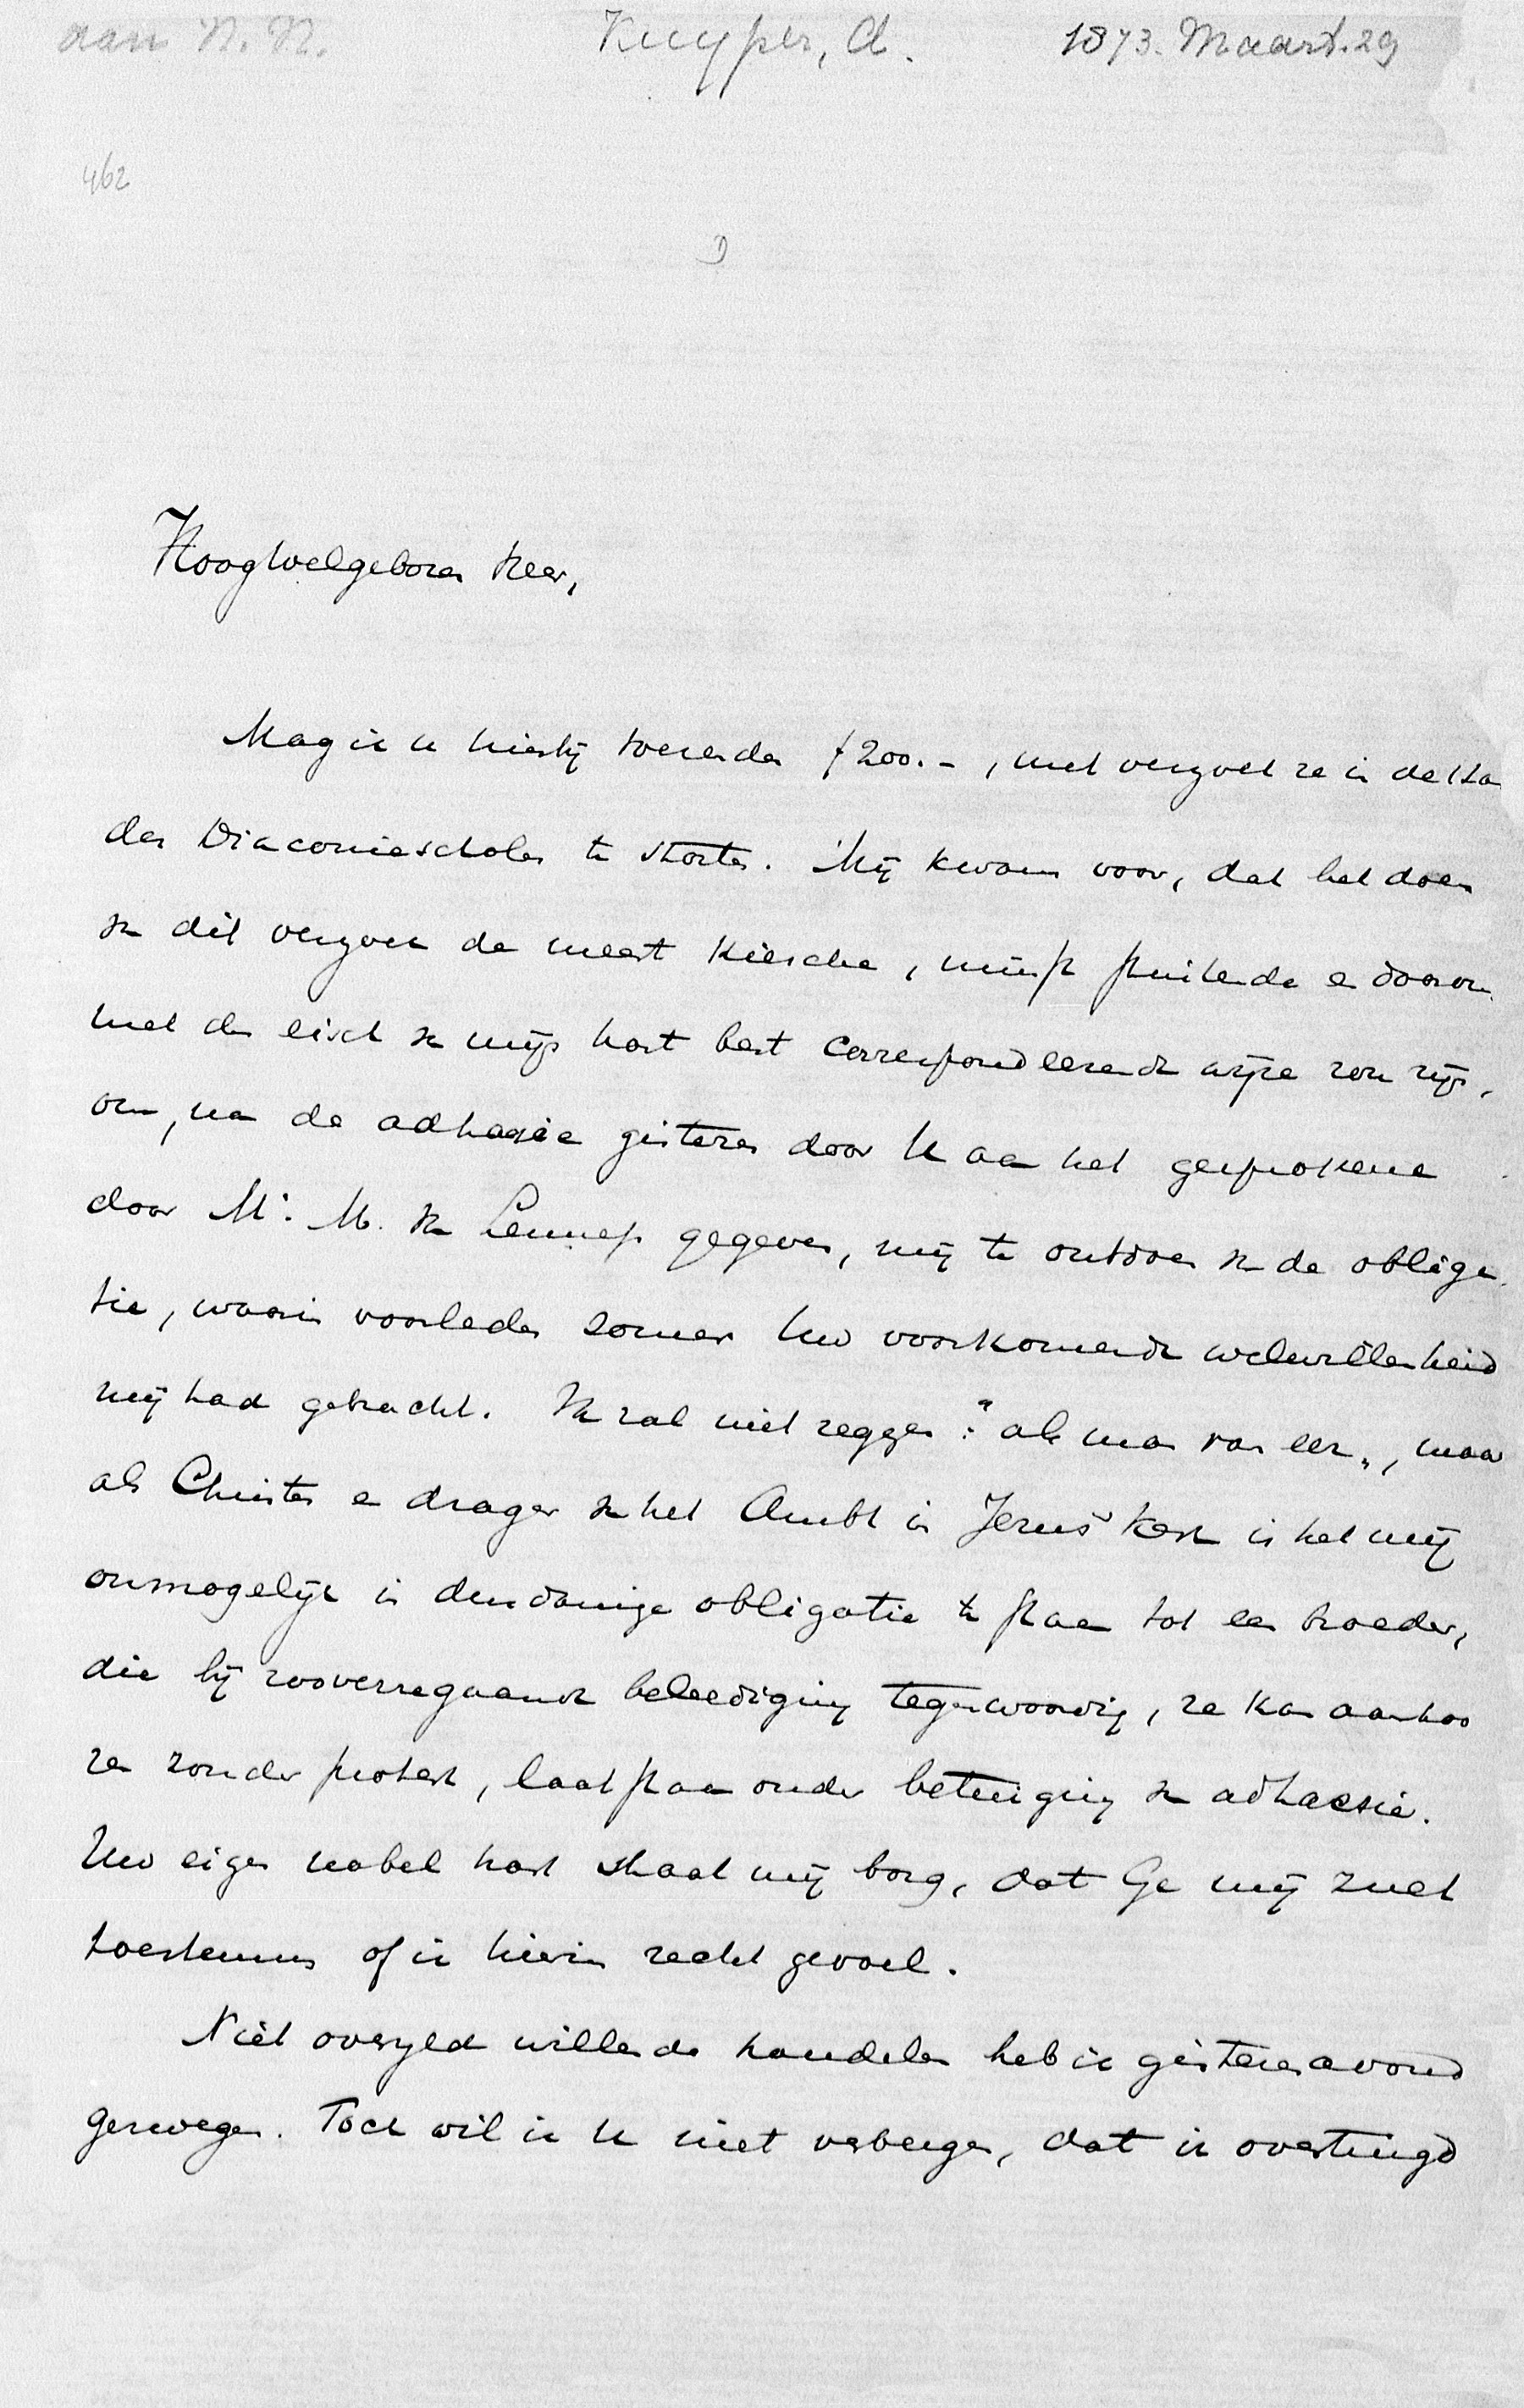 aan N. N. Kuyper, A. 1873. Maart. 29
462
Hoogwelgeboren Heer,
Mag ik U hierbij toezenden f 200.-, met verzoek ze in de kas
der Diaconiescholen te storten. Mij kwam voor, dat het doen
van dit verzoek de meest kiesche, minst stuitende en daarom
met den eisch van mijn hart best correspondeerende wijze zou zijn,
om, na de adhaesie gisteren door U aan het gesprokene
door Mr. M. van Lennep gegeven, mij te ontdoen van de obliga
tie, waarin voorleden zomer Uw voorkomende welwillendheid
mij had gebracht. Ik zal niet zeggen: "als man van eer", maar
als Christen en drager van het Ambt in Jezus' kerk is het mij
onmogelijk in dusdanige obligatie te staan tot een broeder,
die bij zooverregaande beleediging tegenwoordig, ze kan aanhoo
ren zonder protest, laat staan onder betuiging van adhaesie.
Uw eigen nobel hart staat mij borg, dat Ge mij zult
toestemmen of ik hierin recht gevoel.
Niet overijld willende handelen heb ik gisterenavond
gezwegen. Toch wil ik U niet verbergen, dat ik overtuigd